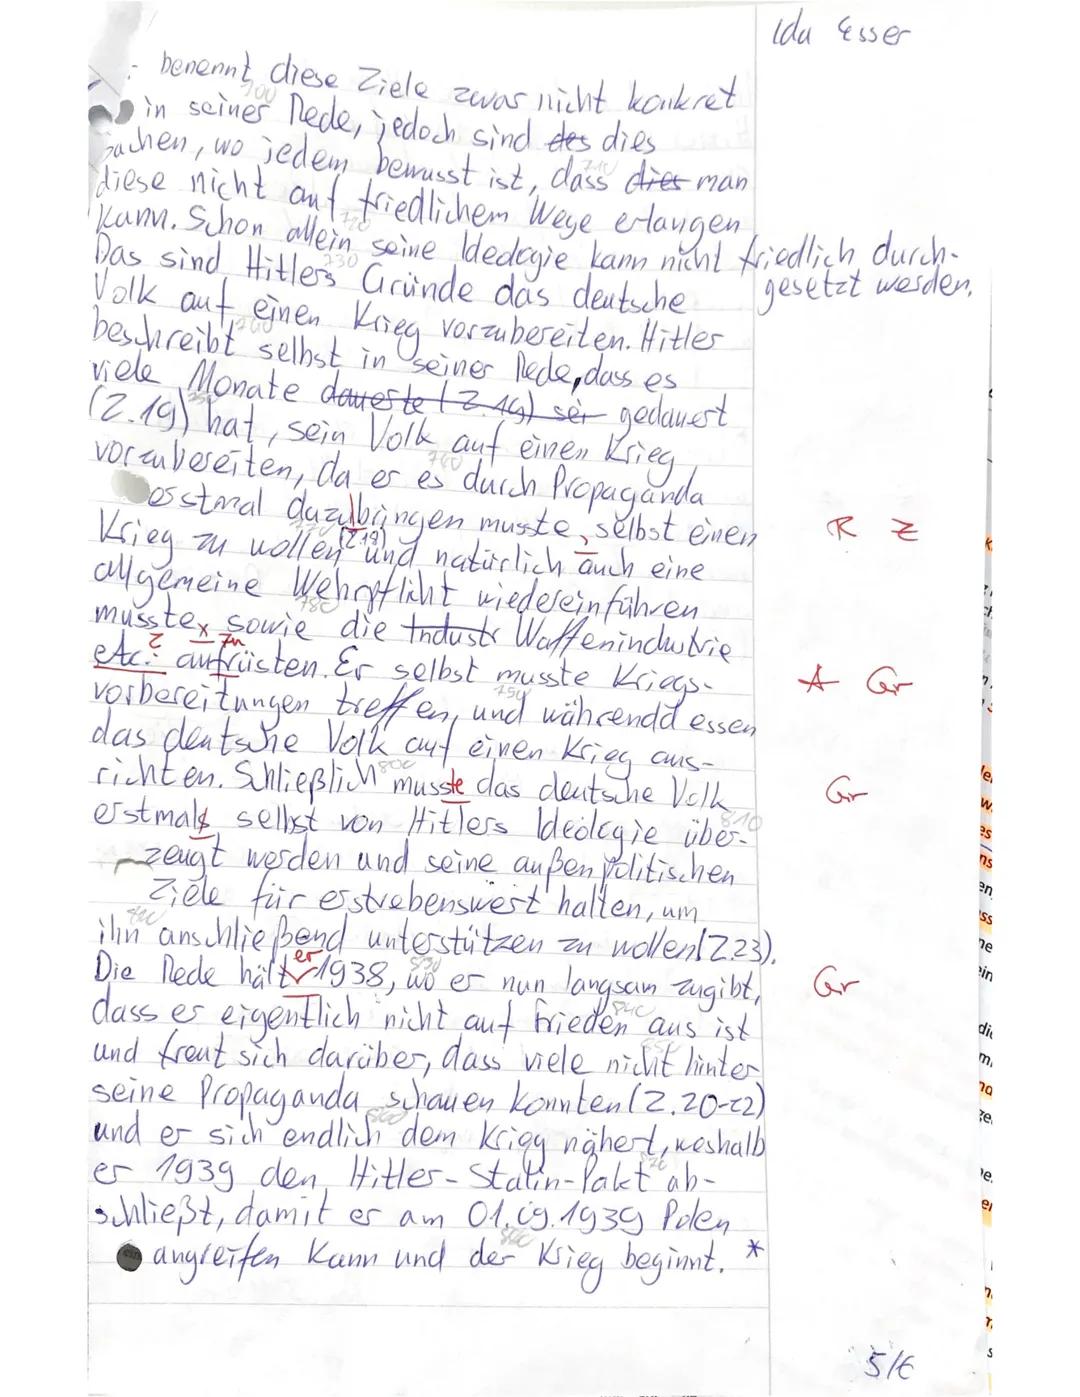 Ida Esser
benennt diese Ziele zwar nicht konkret
in seiner Rede, jedoch sind des dies
sachen, wo jedem bewusst ist, dass dies man
diese nicht auf friedlichem Wege erlangen
kann. Schon allein seine Ideologie kann nicht friedlich durch-
gesetzt werden.
Das sind Hitlers Gründe das deutsche
Volk auf einen Krieg vorzubereiten. Hitler
beschreibt selbst in seiner Rede, dass es
viele Monate dauerte (Z.19) sei gedauert
(Z.19) hat, sein Volk auf einen Krieg
vorzubereiten, da er es durch Propaganda
erstmal dazu|bringen musste, selbst einen
R Z
Krieg zu wollen (Z.18) und natürlich auch eine
allgemeine Wehrpflicht wiedereinführen
musste, sowie die Industr Waffenindustrie
etc. aufrüsten. Er selbst musste Kriegs-
zu
A Gr
vorbereitungen treffen, und währenddessen
das deutsche Volk auf einen Krieg aus-
richten. Schließlich musste das deutsche Volk
Gr
erstmals selbst von Hitlers Ideologie über-
zeugt werden und seine außenpolitischen
Ziele für erstrebenswert halten, um
ihn anschließend unterstützen zu wollen (Z.23).
Die Rede hält er 1938, wo er nun langsam zugibt,
Gr
dass er eigentlich nicht auf Frieden aus ist
und freut sich darüber, dass viele nicht hinter
seine Propaganda schauen konnten (Z.20-22)
und er sich endlich dem Krieg nähert, weshalb
er 1939 den Hitler-Stalin-Pakt ab-
schließt, damit er am 01.09.1939 Polen
angreifen kann und der Krieg beginnt. *
5/6